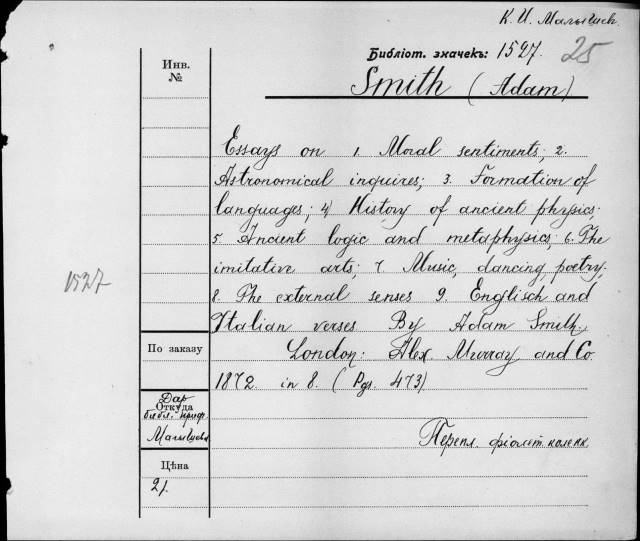 К. И. Малышев.
Библіот. значекъ: 1527. 25
Инв.
№
Smith (Adam)
Essays on 1. Moral sentiments; 2.
Astronomical inquires; 3. Formation of
languages; 4) History of ancient physics;
5. Ancient logic and metaphysics; 6. The
imitative arts; 7. Music, dancing, poetry;
1527
8. The external senses 9. Englisch and
Italian verses By Adam Smith.
По заказу
London: Alex. Murray and Co.
1872. in 8. (Pgs. 473)
Дар
Откуда
библ. проф.
Малышева
Перепл. фіолет. коленк.
Цѣна
2/.